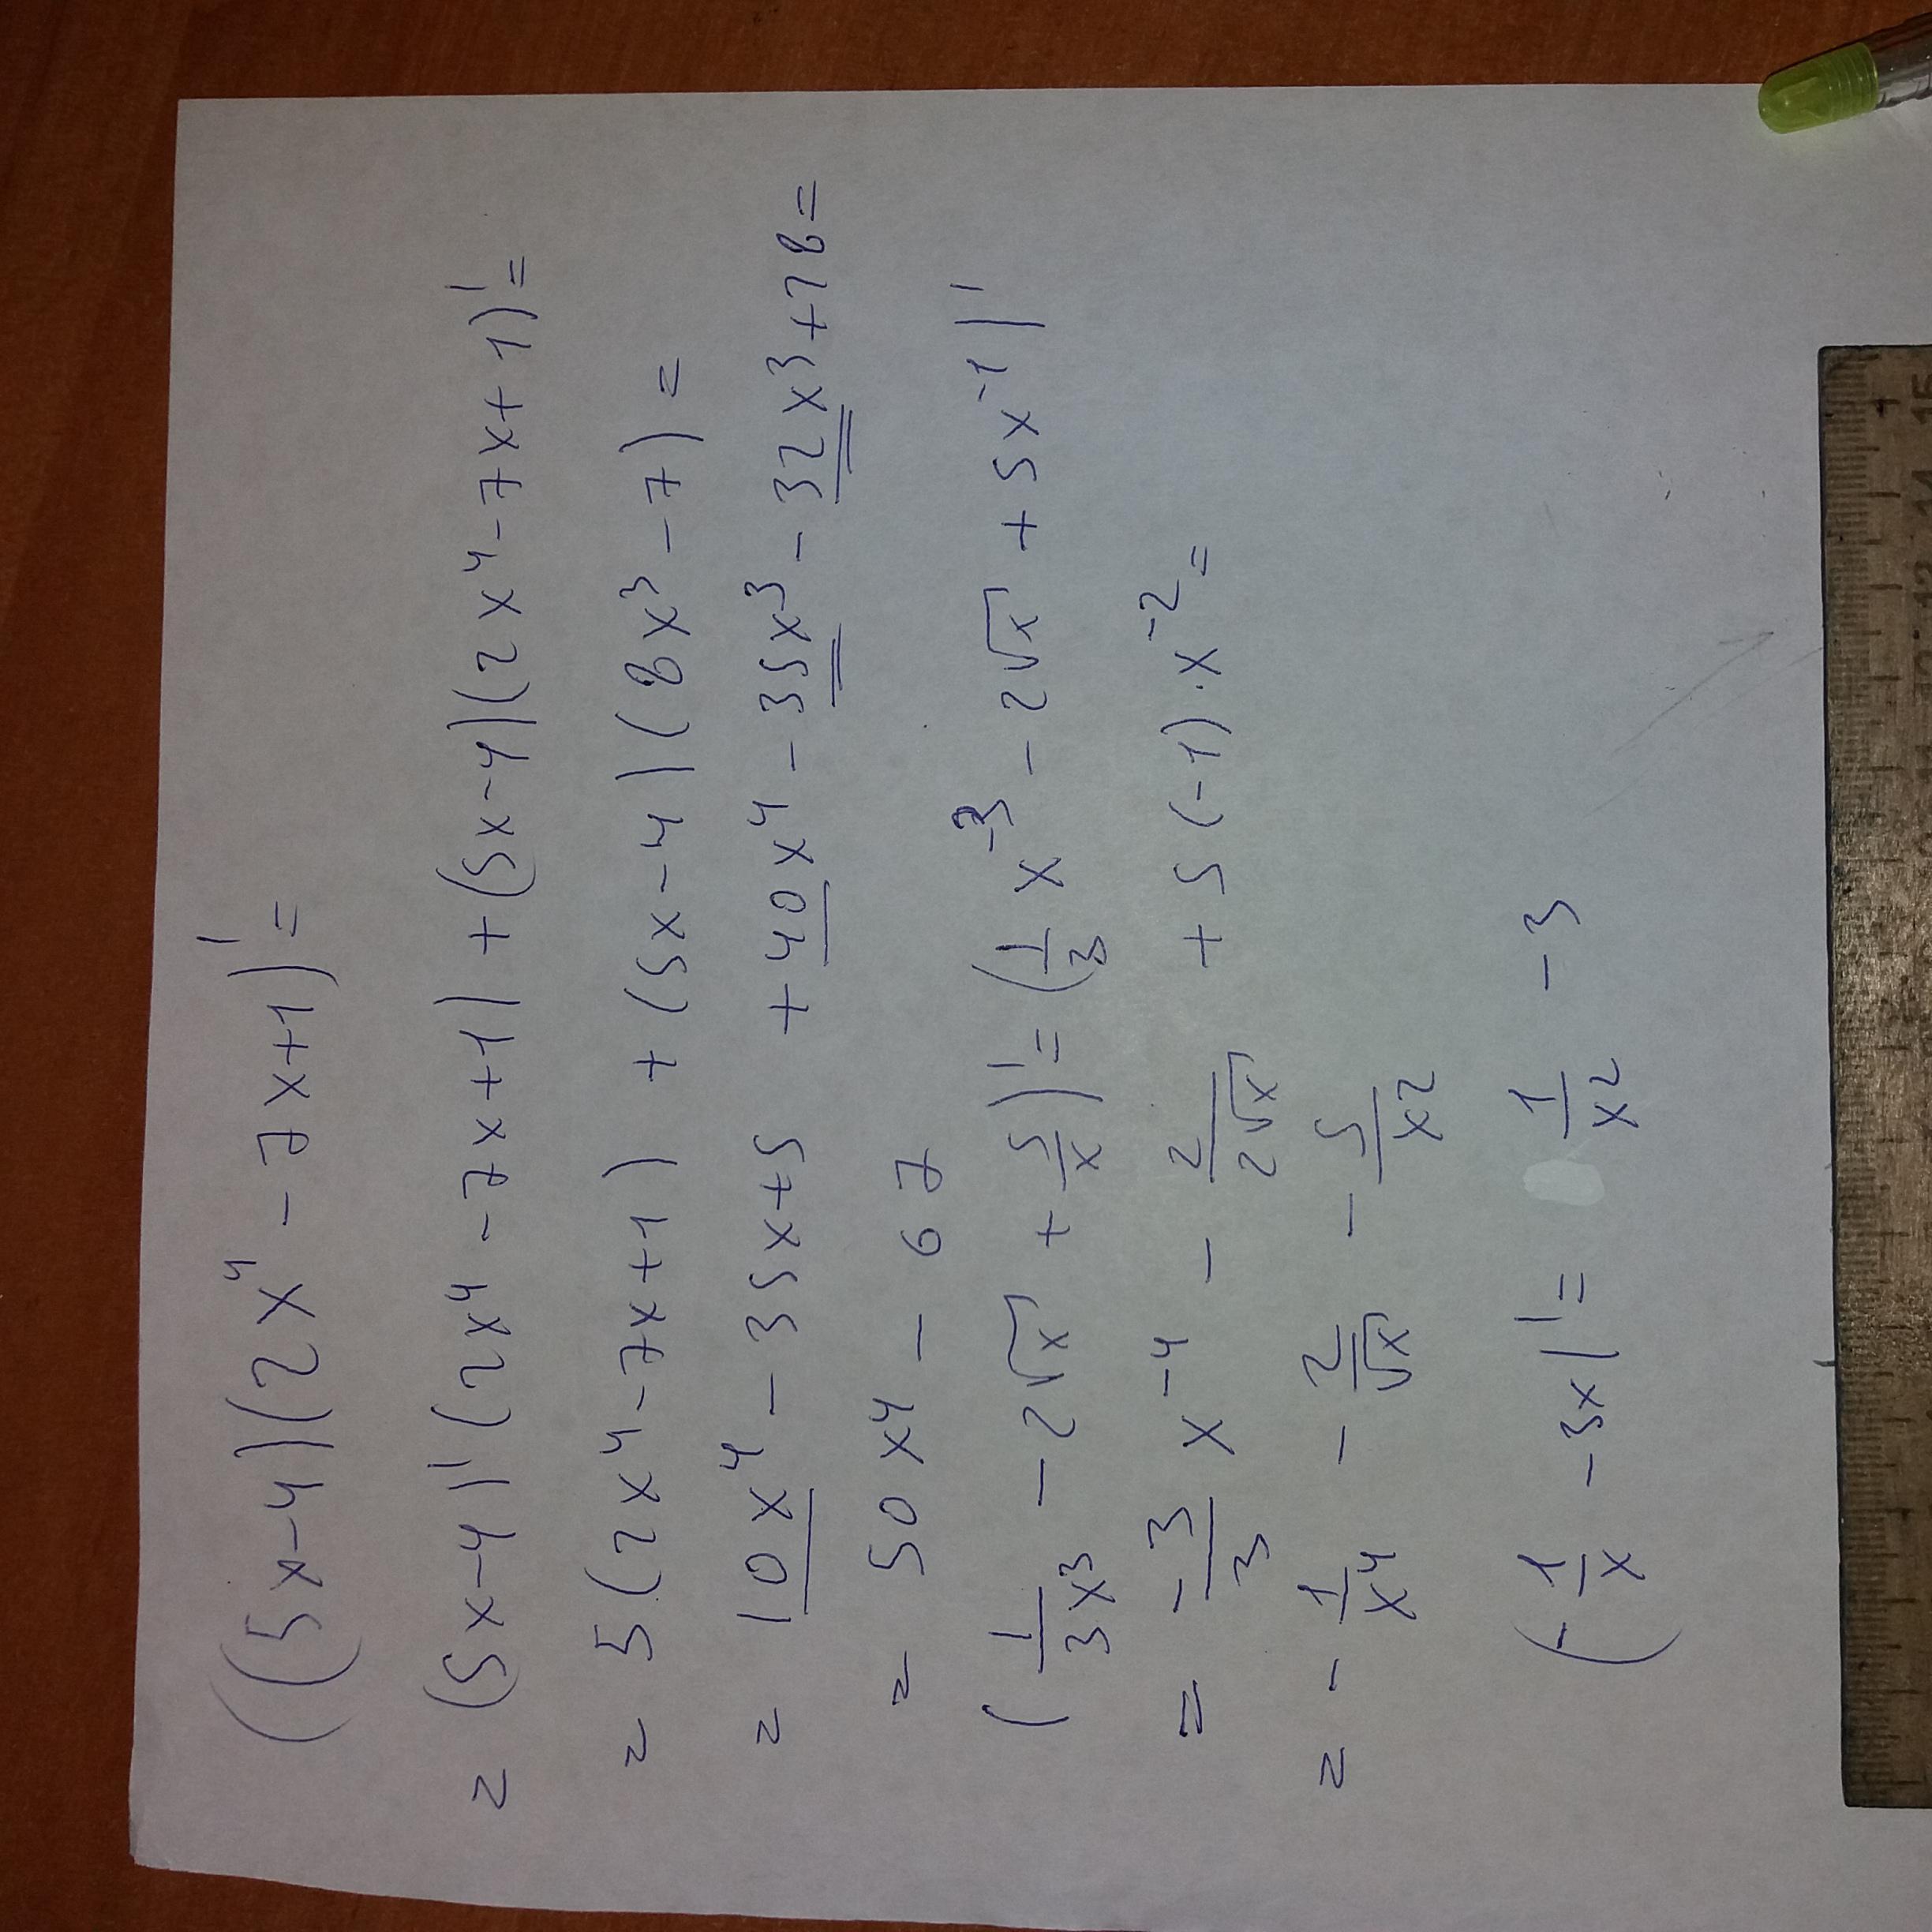 ((5x-4)(2x⁴ - 7x+1)' =
= (5x-4)'(2x⁴ - 7x+1) + (5x-4)(2x⁴-7x+1)' =
= 5(2x⁴-7x+1) + (5x-4)(8x³-7) =
= 10x⁴ - 35x+5 + 40x⁴ - 35x³ - 32x³+28 =
= 50x⁴ - 67
(1/3x³ - 2√x + 5/x)' = (1/3 x⁻³ - 2√x + 5x⁻¹)'
= -3/3 x⁻⁴ - 2/2√x + 5(-1)·x⁻² =
= -1/x⁴ - 2/√x - 5/x²
(-1/x - 3x)' = 1/x² - 3
12 14 15